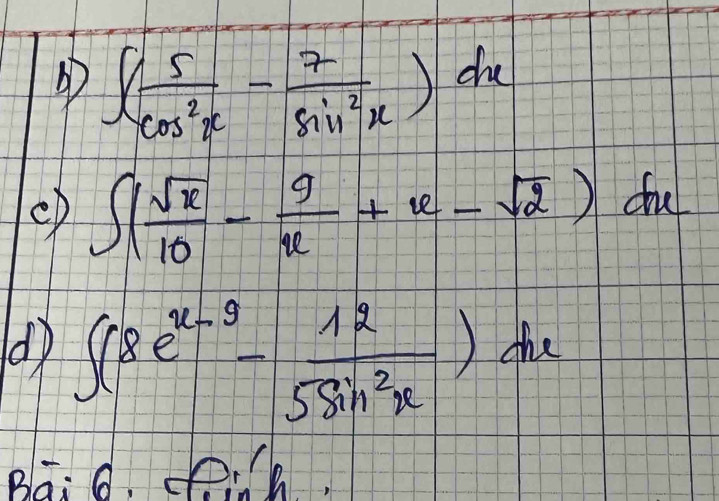 b) ∫(5/cos²x - 7/sin²x) dx
c) ∫(√x/10 - 9/x + x - √2) dx
d) ∫(8e^(x-9) - 12/(5sin²x)) dx
Bài 6. Tính.